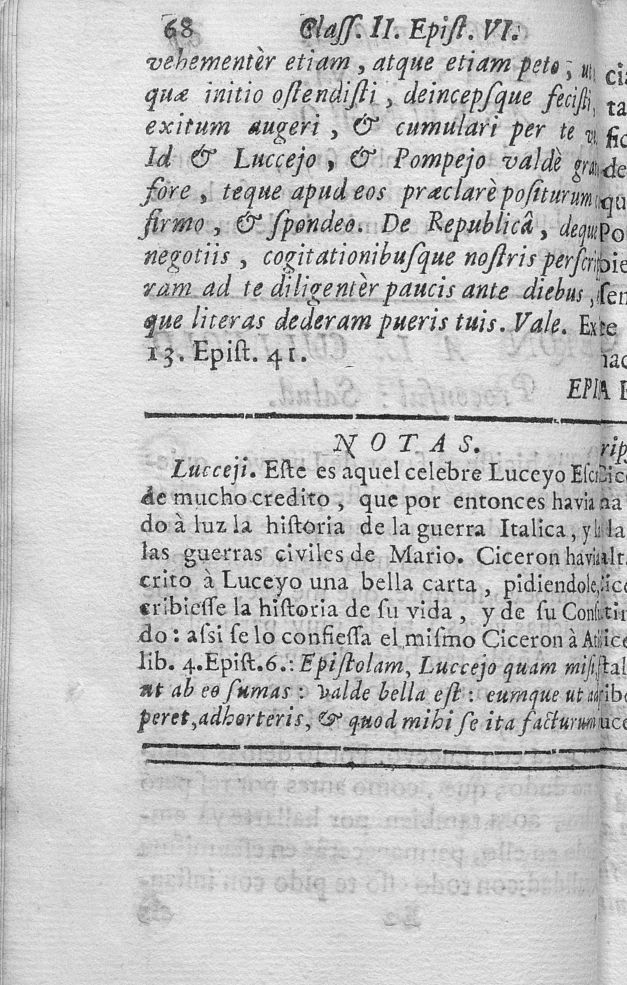 68 Claſſ. II. Epiſt. VI.
vehementèr etiam, atque etiam peto,
quæ initio oſtendiſti, deincepſque feciſti,
exitum augeri, & cumulari per te
Id & Luccejo, & Pompejo valdè
fore, teque apud eos præclarè poſiturum
firmo, & ſpondeo. De Republicâ,
negotiis, cogitationibuſque noſtris
ram ad te diligentèr paucis ante diebus,
que literas dederam pueris tuis. Vale. Ex
13. Epiſt. 41.
NOTAS.
Lucceji. Eſte es aquel celebre Luceyo
de mucho credito, que por entonces havia
do à luz la hiſtoria de la guerra Italica, y
las guerras civiles de Mario. Ciceron
crito à Luceyo una bella carta, pidiendole,
cribieſſe la hiſtoria de ſu vida, y de ſu
do: aſsi ſe lo confieſſa el miſmo Ciceron à
lib. 4. Epiſt. 6.: Epiſtolam, Luccejo quam
ut ab eo ſumas: valde bella eſt: eumque ut
peret, adhorteris, & quod mihi ſe ita